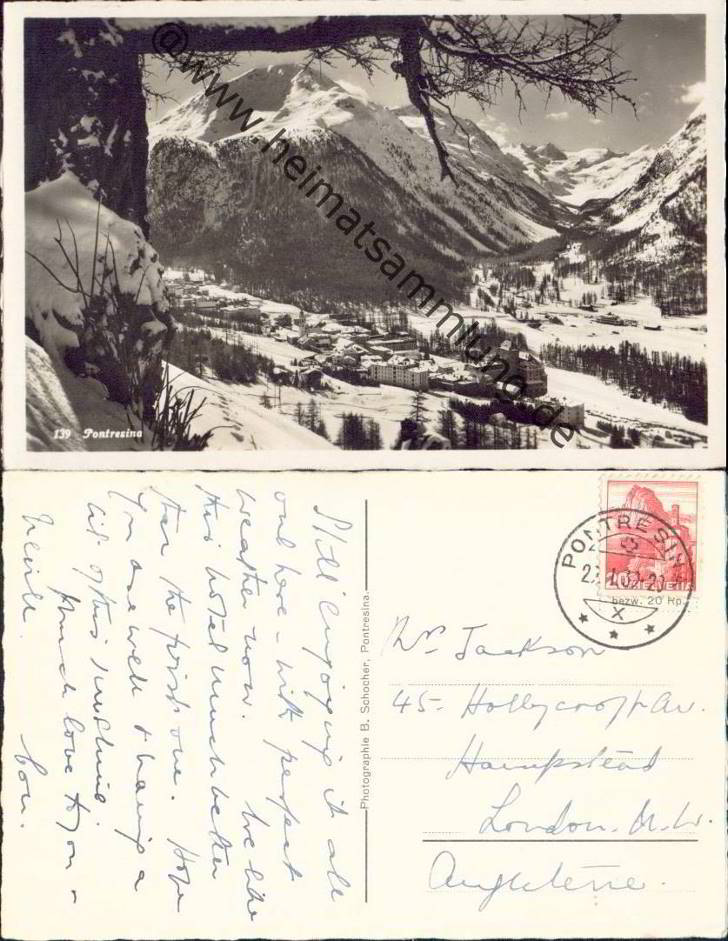 @www.heimatsammlung.de
139 Pontresina
Still enjoying it all
out here - with perfect
weather now. We like
this hotel much better
than the first one. Hope
you are well & having a
bit of this sunshine.
Much love to you -
Con.
Neville.
Photographie B. Schocher, Pontresina.
PONTRESIN
HELVETIA
bezw. 20 Rp.
X
Jackson
45- Hollycroft Av.
Hampstead
London. N.W.
Angleterre.